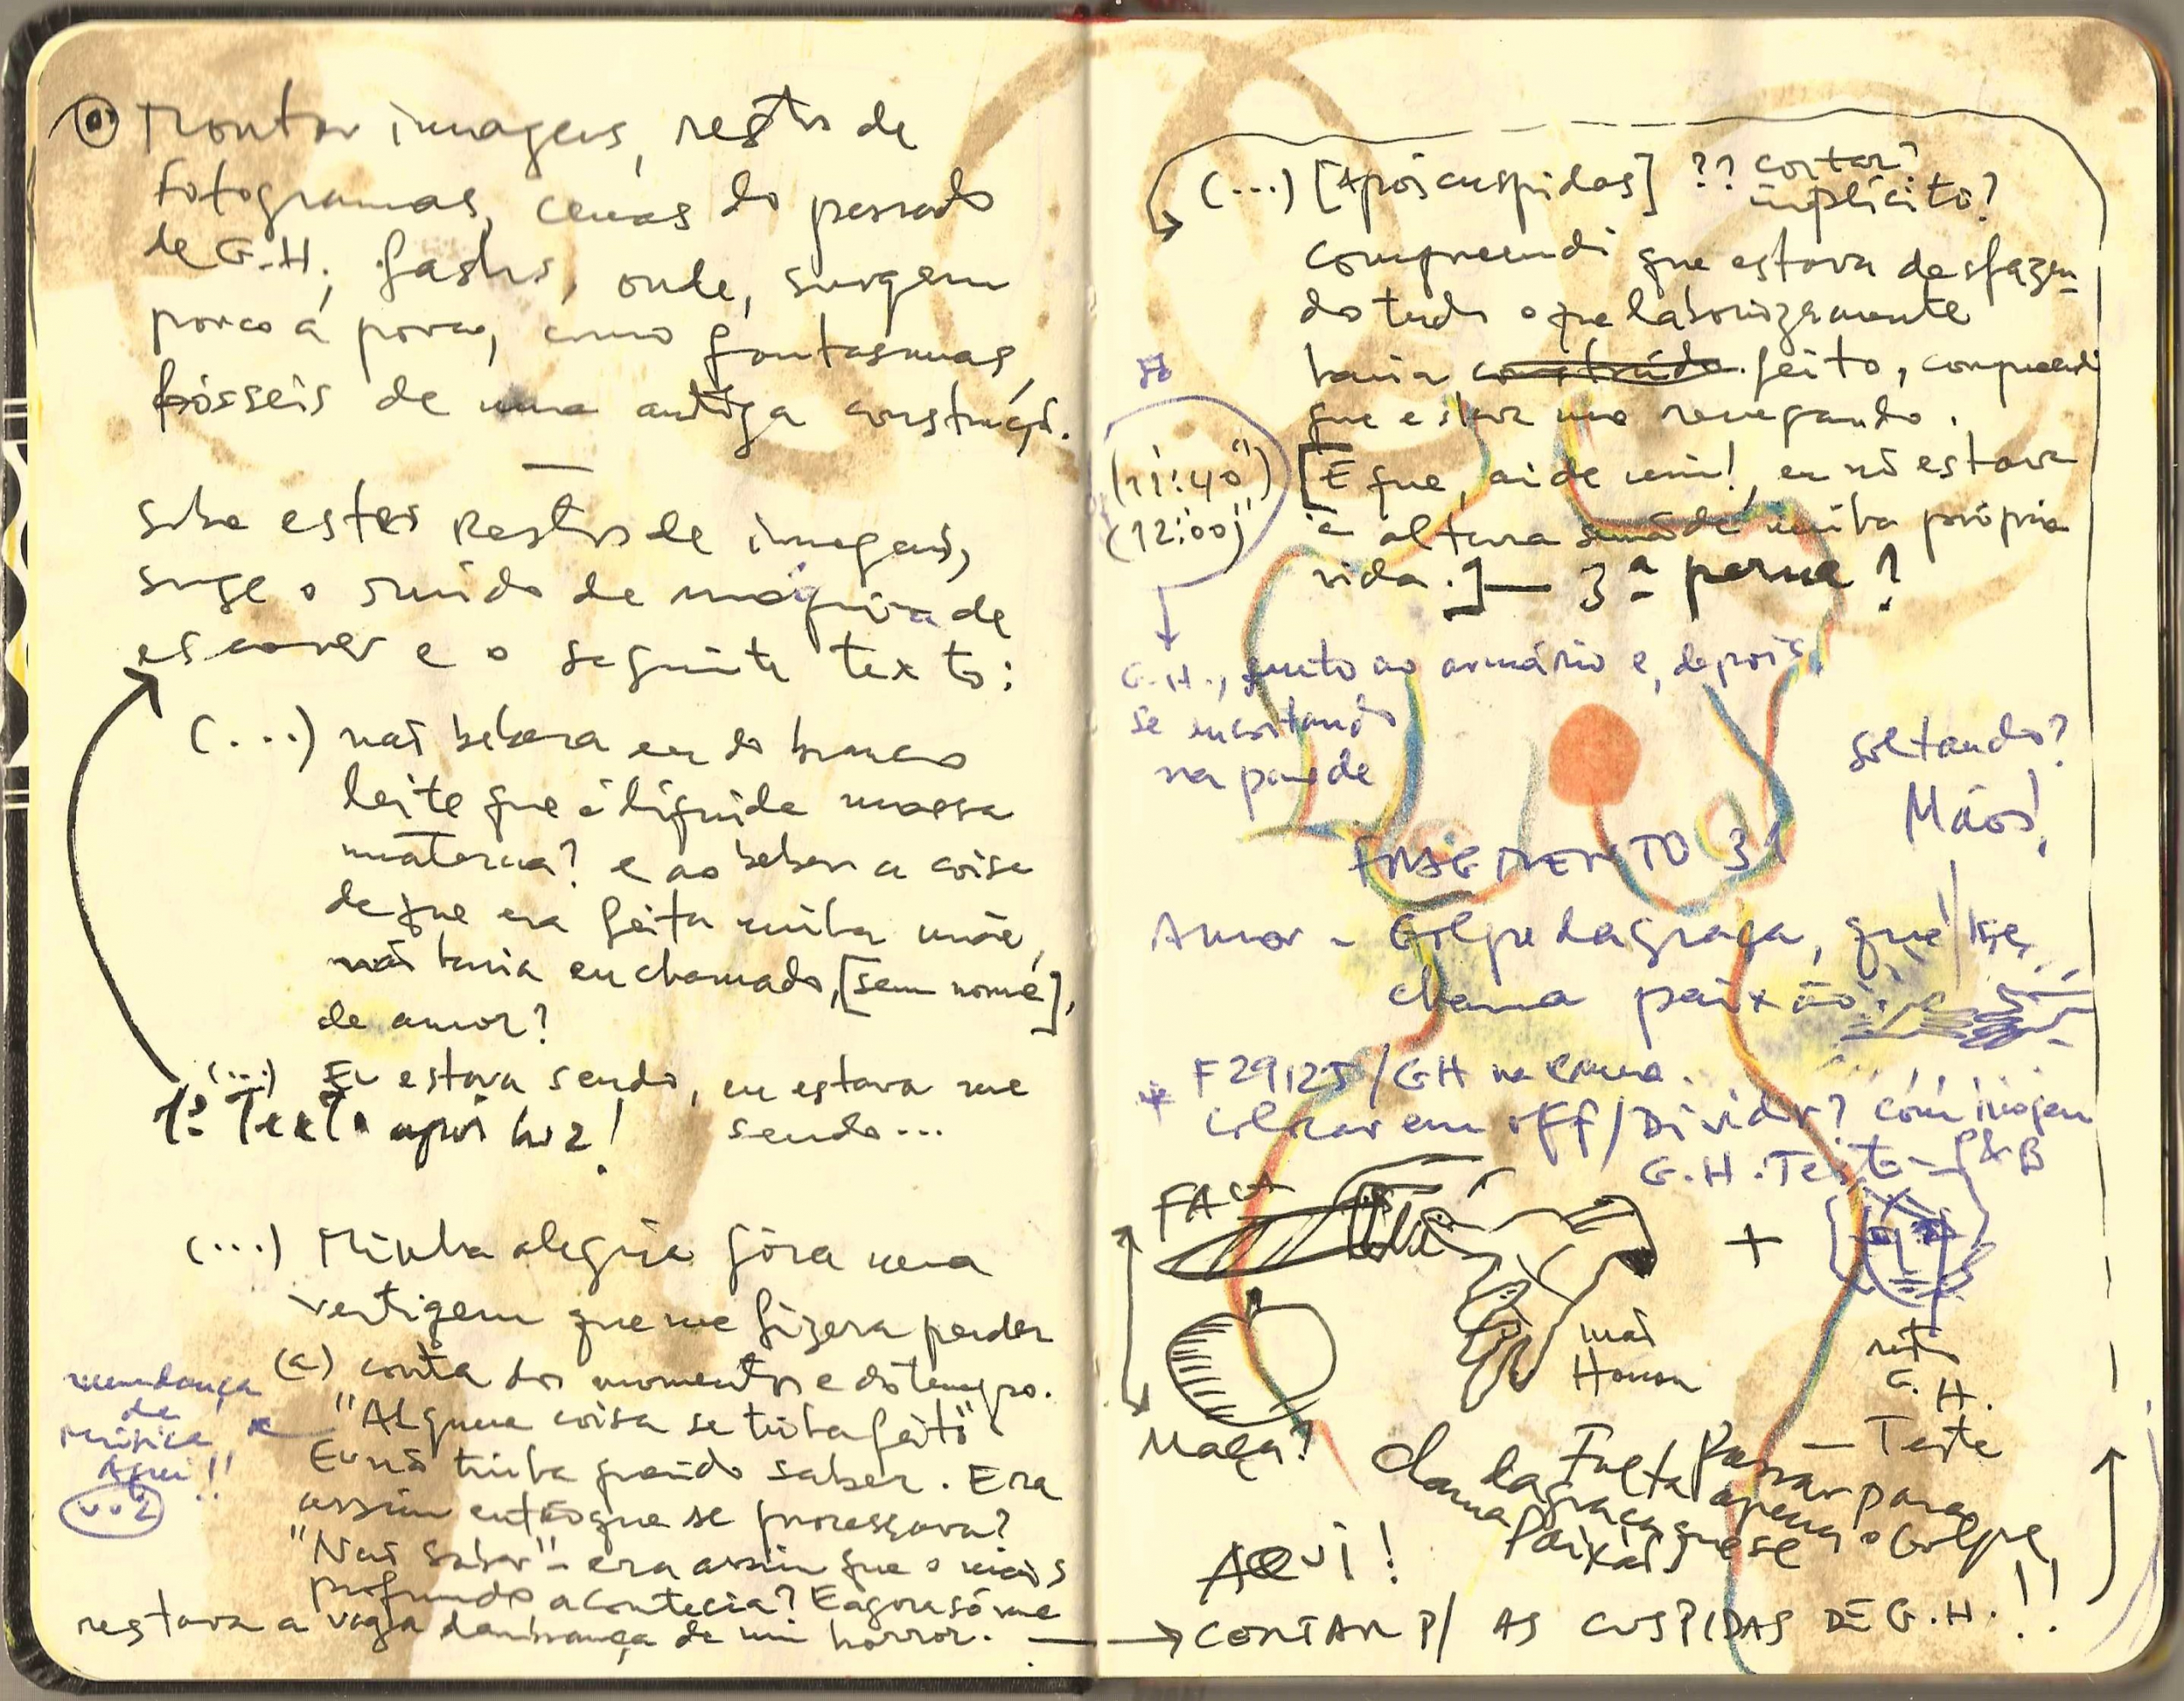 Montar imagens, restos de
fotogramas, cenas do passado
de G.H., flashs, onde, surgem
pouco a pouco, como fantasmas,
fósseis de uma antiga construção.
Sobre estes restos de imagens,
surge o ruído de máquina de
escrever e o seguinte texto:
(...) não bebera eu do branco
leite que é líquida massa
materna? e ao beber a coisa
de que era feita minha mãe,
não havia eu chamado, [sem nome],
de amor?
(...) Eu estava sendo, eu estava me
sendo...
1º Texto após luz!
(...) Minha alegria fôra uma
vertigem que me fizera perder
(a) conta dos momentos e do tempo.
"Alguma coisa se tinha feito"
Eu não tinha querido saber. Era
assim então que se processava?
"Não saber" - era assim que o mais
profundo acontecia? E agora só me
restava a vaga lembrança de um horror.
mudança
de
música
Aqui!!
(...) [Após cuspidas] ?? cortar?
implícito?
Compreendi que estava desfazen-
do tudo o que laboriozamente
havia construído feito, compreendi
que estava me renegando.
(11:40")
(12:00)"
[E que, ai de mim!, eu nõ estava
à altura senão de minha própria
vida.] — 3ª perna?
G.H., junto ao armário e, depois,
se encostando
na parede
soltando?
Mãos!
FRAGMENTO 31
Amor - Golpe da graça, que se
chama paixão
* F29125/GH na cama.
Colocar em off/Dividir? com imagem
G.H. Texto - P&B
FACA
+
mão
Homem
rosto
G.H.
Maçã!
— Teste
Falta Passar para
apenas o Golpe
da graça que se
chama Paixão
AQUI!
→ CONTAR P/ AS CUSPIDAS DE G.H.!!